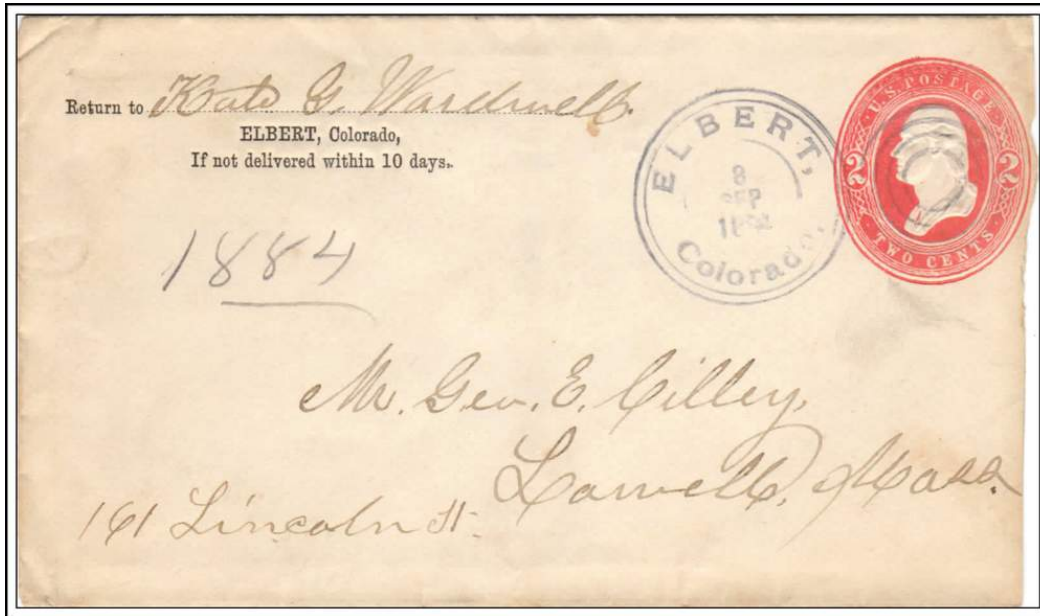 Return to Kate G. Wardwell.
ELBERT, Colorado,
If not delivered within 10 days.
ELBERT,
8
SEP
Colorado.
U.S. POSTAGE
2 2
TWO CENTS
1884
Mr. Geo. E. Cilley,
Lowell, Mass.
161 Lincoln St.